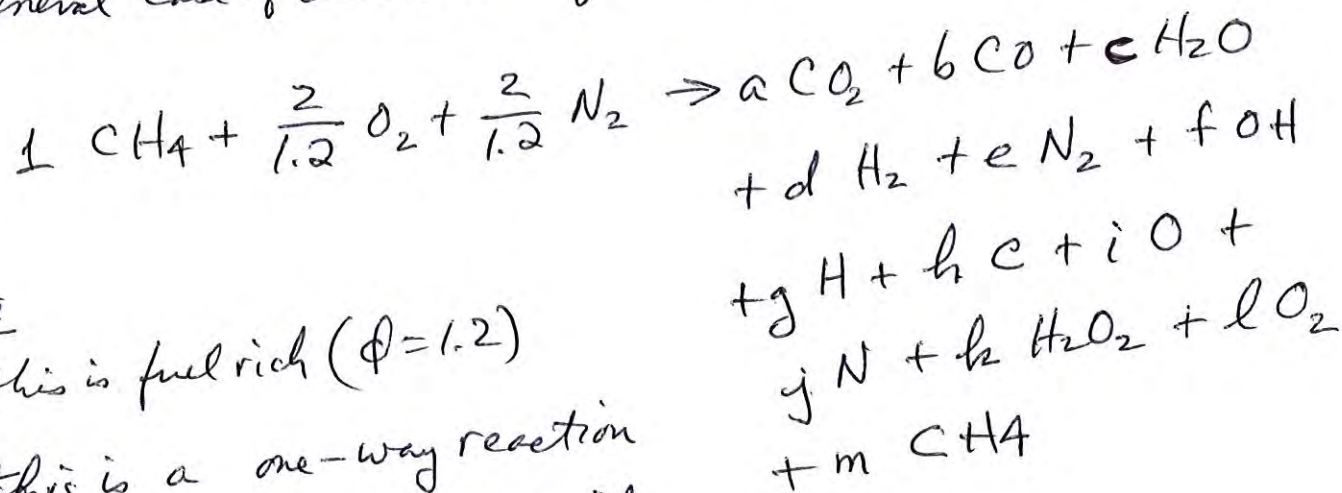 1 CH4 + 2/1.2 O₂ + 2/1.2 N₂ → a CO₂ + b CO + c H₂O
+ d H₂ + e N₂ + f OH
+ g H + h C + i O +
j N + k H₂O₂ + l O₂
+ m CH4
is fuel rich (ϕ=1.2)
this is a one-way reaction